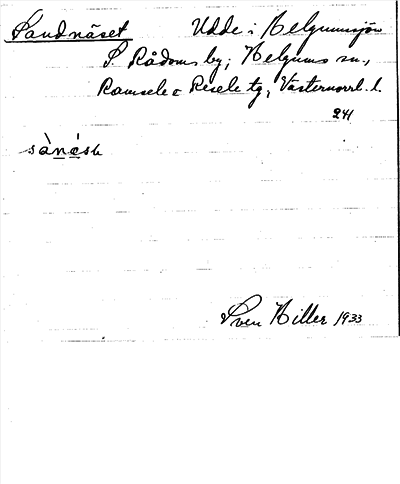 Sandnäset Udde i Helgumsjön
S. Rådoms by, Helgums sn.,
Ramsele o Resele tg, Västernorrl. l.
241
Sven Hiller 1933